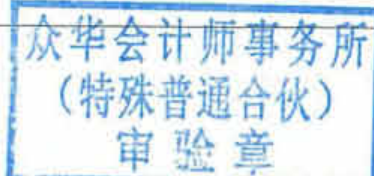 众华会计师事务所
（特殊普通合伙）
审验章